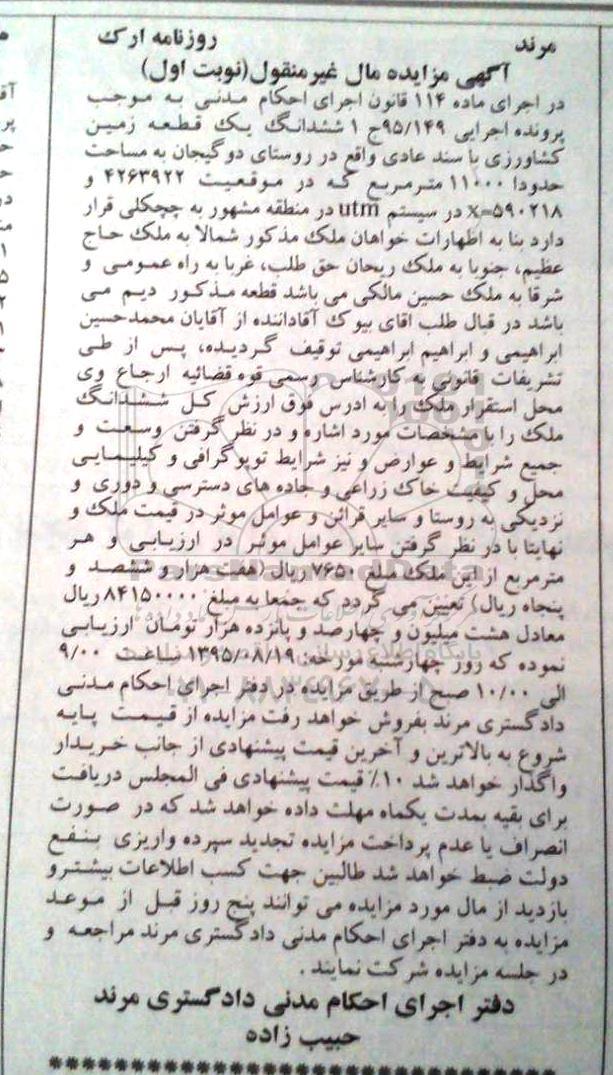 مرند روزنامه ارک
آگهی مزایده مال غیرمنقول(نوبت اول)
در اجرای ماده ۱۱۴ قانون اجرای احکام مدنی به موجب
پرونده اجرایی ۹۵/۱۴۹ج ۱ ششدانگ یک قطعه زمین
کشاورزی با سند عادی واقع در روستای دوگیجان به مساحت
حدودا ۱۱۰۰۰ مترمربع که در موقعیت ۴۲۶۳۹۲۲ و
x=۵۹۰۲۱۸ در سیستم utm در منطقه مشهور به چچکلی قرار
دارد بنا به اظهارات خواهان ملک مذکور شمالا به ملک حاج
عظیم، جنوبا به ملک ریحان حق طلب، غربا به راه عمومی و
شرقا به ملک حسین مالکی می باشد قطعه مذکور دیم می
باشد در قبال طلب اقای بیوک آقاداننده از آقایان محمدحسین
ابراهیمی و ابراهیم ابراهیمی توقیف گردیده، پس از طی
تشریفات قانونی به کارشناس رسمی قوه قضائیه ارجاع وی
محل استقرار ملک را به ادرس فوق ارزش کل ششدانگ
ملک را با مشخصات مورد اشاره و در نظر گرفتن وسعت و
جمیع شرایط و عوارض و نیز شرایط توپوگرافی و کیلیمایی
محل و کیفیت خاک زراعی و جاده های دسترسی و دوری و
نزدیکی به روستا و سایر قرائن و عوامل موثر در قیمت ملک و
نهایتا با در نظر گرفتن سایر عوامل موثر در ارزیابی و هر
مترمربع از این ملک مبلغ ۷۶۵۰ ریال (هفت هزار و ششصد و
پنجاه ریال) تعیین می گردد که جمعا به مبلغ ۸۴۱۵۰۰۰۰ ریال
معادل هشت میلیون و چهارصد و پانزده هزار تومان ارزیابی
نموده که روز چهارشنبه مورخه: ۱۳۹۵/۰۸/۱۹ ساعت ۹/۰۰
الی ۱۰/۰۰ صبح از طریق مزایده در دفتر اجرای احکام مدنی
دادگستری مرند بفروش خواهد رفت مزایده از قیمت پایه
شروع به بالاترین و آخرین قیمت پیشنهادی از جانب خریدار
واگذار خواهد شد ۱۰٪ قیمت پیشنهادی فی المجلس دریافت
برای بقیه بمدت یکماه مهلت داده خواهد شد که در صورت
انصراف یا عدم پرداخت مزایده تجدید سپرده واریزی بنفع
دولت ضبط خواهد شد طالبین جهت کسب اطلاعات بیشتر و
بازدید از مال مورد مزایده می توانند پنج روز قبل از موعد
مزایده به دفتر اجرای احکام مدنی دادگستری مرند مراجعه و
در جلسه مزایده شرکت نمایند .
دفتر اجرای احکام مدنی دادگستری مرند
حبیب زاده